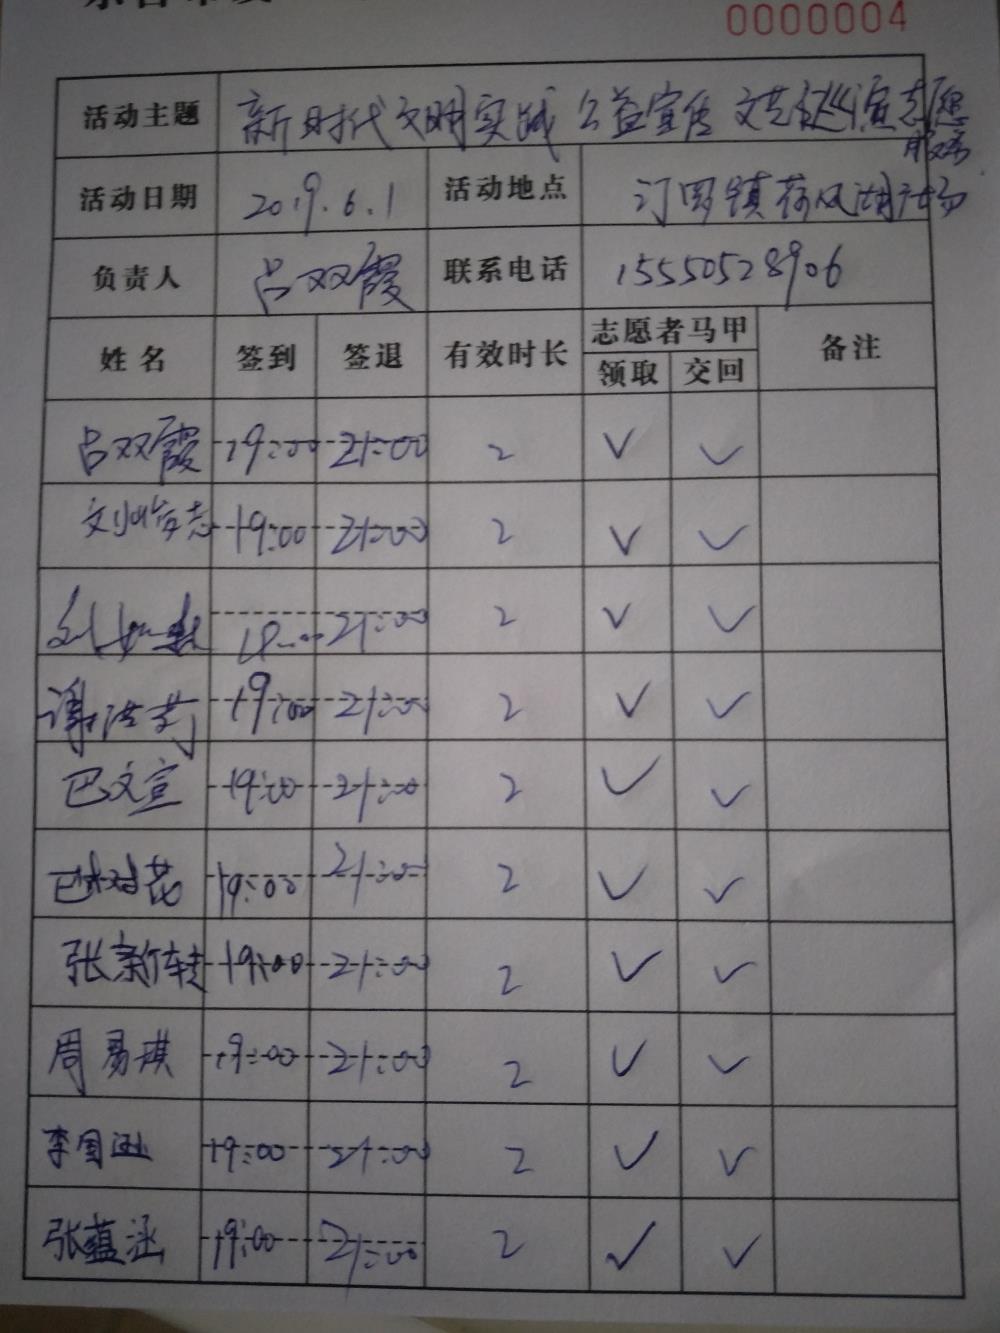 0000004
活动主题 新时代文明实践 公益宣传 文艺巡演志愿
服务
活动日期 2019.6.1 活动地点 汀罗镇荷风湖广场
负责人 吕双霞 联系电话 15550528906
姓名 签到 签退 有效时长 志愿者马甲 备注
领取 交回
吕双霞 19:00 21:00 2 √ √
19:00 21:00 2 √ √
21:00 2 √ √
谢洪芳 19:00 21:00 2 √ √
巴文宣 19:00 21:00 2 √ √
巴树花 19:00 21:00 2 √ √
张新转 19:00 21:00 2 √ √
周易琪 19:00 21:00 2 √ √
李国 19:00 21:00 2 √ √
张蕴涵 19:00 21:00 2 √ √